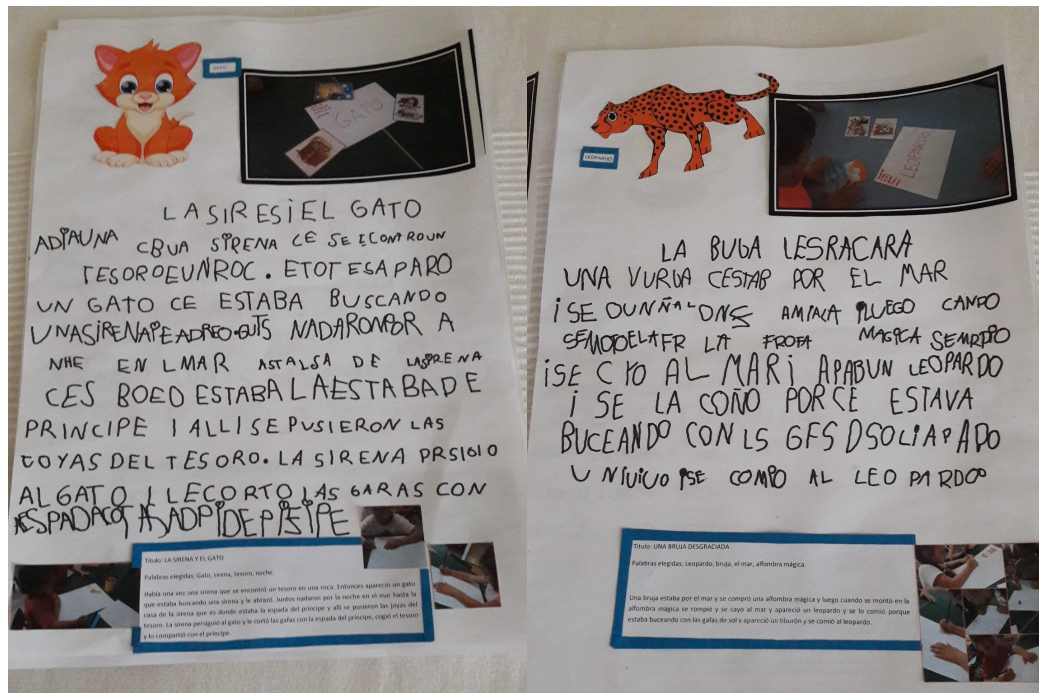 GATO
GATO
LA SIRESiEL GATO
ADIAUNA CBUA SIRENA CE SE ECONTROUN
TESOROEUNROC. ETOTESAPARO
UN GATO CE ESTABA BUSCANDO
UNASIRENA NADARON A
NHE EN LMAR ASTALSA DE LASIRENA
CES BOED ESTABA LAESTABADE
PRINCIPE I ALLI SE PUSIERON LAS
COYAS DEL TESORO. LA SIRENA PRSIGIO
AL GATO I LECORTO LAS GARAS CON
Titulo: LA SIRENA Y EL GATO
Palabras elegidas; Gato, sirena, tesoro, noche.
Había una vez una sirena que se encontró un tesoro en una roca. Entonces apareció un gato
que estaba buscando una sirena y le abrazó. Juntos nadaron por la noche en el mar hasta la
casa de la sirena que es donde estaba la espada del príncipe y allí se pusieron las joyas del
tesoro. La sirena persiguió al gato y le cortó las gafas con la espada del príncipe, cogió el tesoro
y lo compartió con el príncipe.
LEOPARDO
LEOPARDO
LA BUGA LESRACARA
UNA VURGA CESTAB POR EL MAR
i SE LUEGO
LA MAGICA
iSE CYO AL MAR i APABUN LEOPARDO
i SE LA COÑO PORCE ESTAVA
BUCEANDO CON LS GFS DSOLIAPADO
COMIO AL LEOPARDO
Titulo: UNA BRUJA DESGRACIADA
Palabras elegidas; Leopardo, bruja, el mar, alfombra mágica.
Una bruja estaba por el mar y se compró una alfombra mágica y luego cuando se montó en la
alfombra mágica se rompió y se cayo al mar y apareció un leopardo y se lo comió porque
estaba buceando con las gafas de sol y apareció un tiburón y se comió al leopardo.